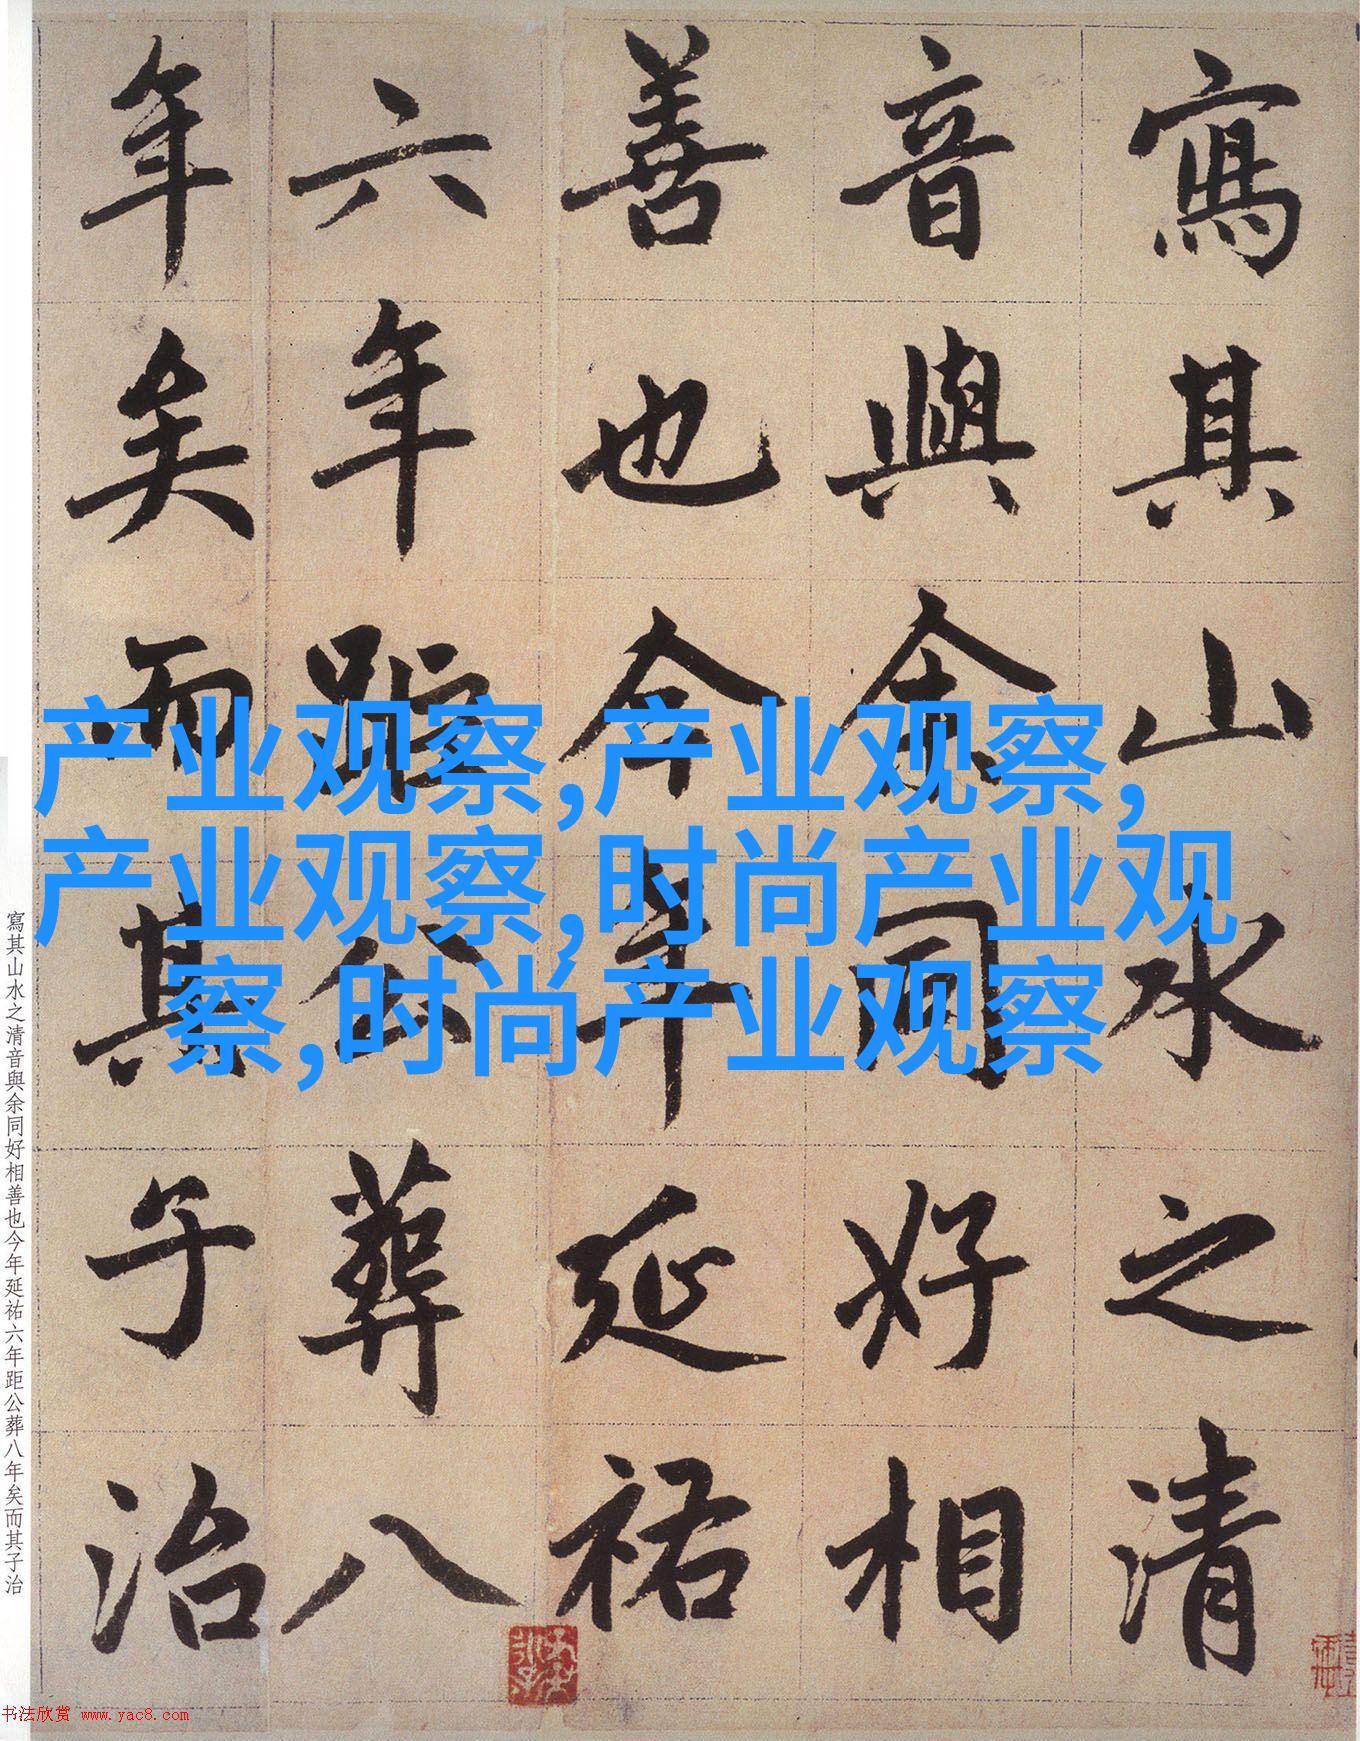 寫其山水之清
音與余同好相
善也今年延祐
六年距公葬八
年矣而其子治
产业观察,产业观察,
产业观察,时尚产业观
察,时尚产业观察
寫其山水之清音與余同好相善也今年延祐六年距公葬八年矣而其子治
书法欣赏 www.yac8.com